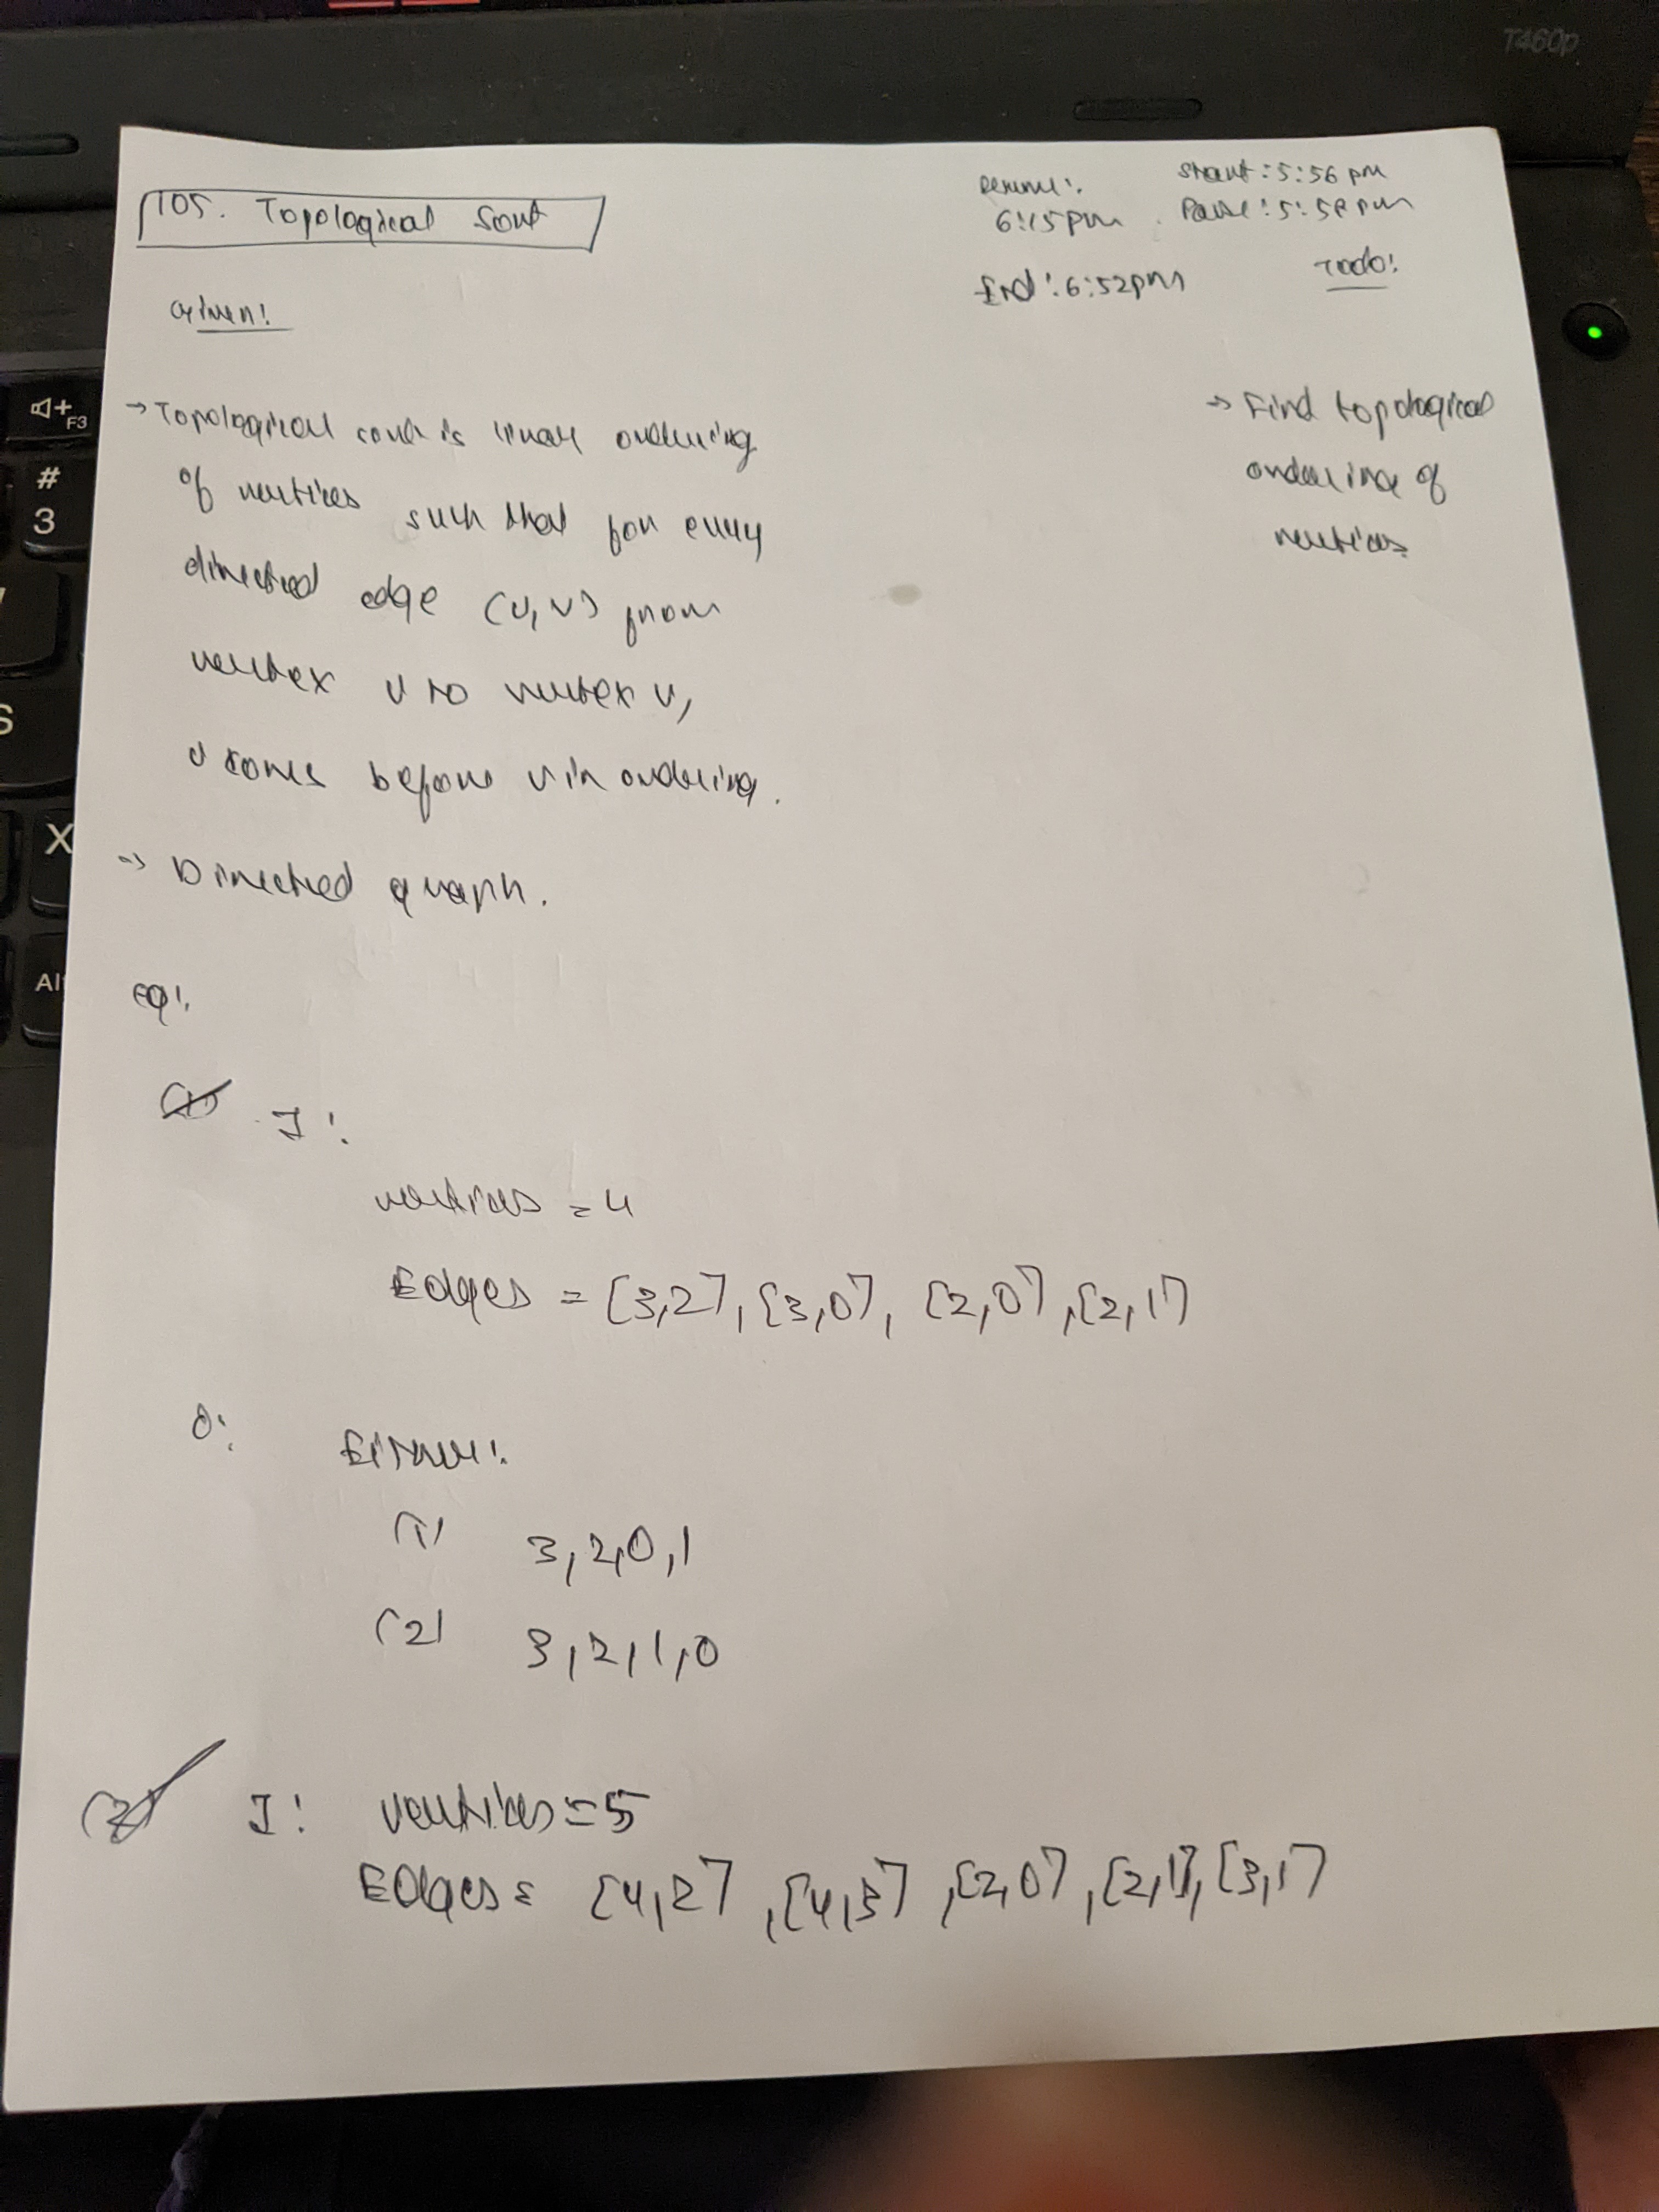 T460p
105. Topological Sort
Resume:
6:15pm
Start: 5:56 pm
Pause: 5:58 pm
End: 6:52pm
Todo:
Given:
→ Topological sort is linear ordering
of vertices such that for every
directed edge (U, V) from
vertex U to vertex V,
U comes before V in ordering.
→ Directed graph.
→ Find topological
ordering of
vertices.
eg:
(1) I:
vertices = 4
Edges = [3,2], [3,0], [2,0], [2,1]
O:
Either:
(1) 3,2,0,1
(2) 3,2,1,0
(2) I: vertices = 5
Edges = [4,2], [4,3], [2,0], [2,1], [3,1]
F3
#
3
S
X
Alt